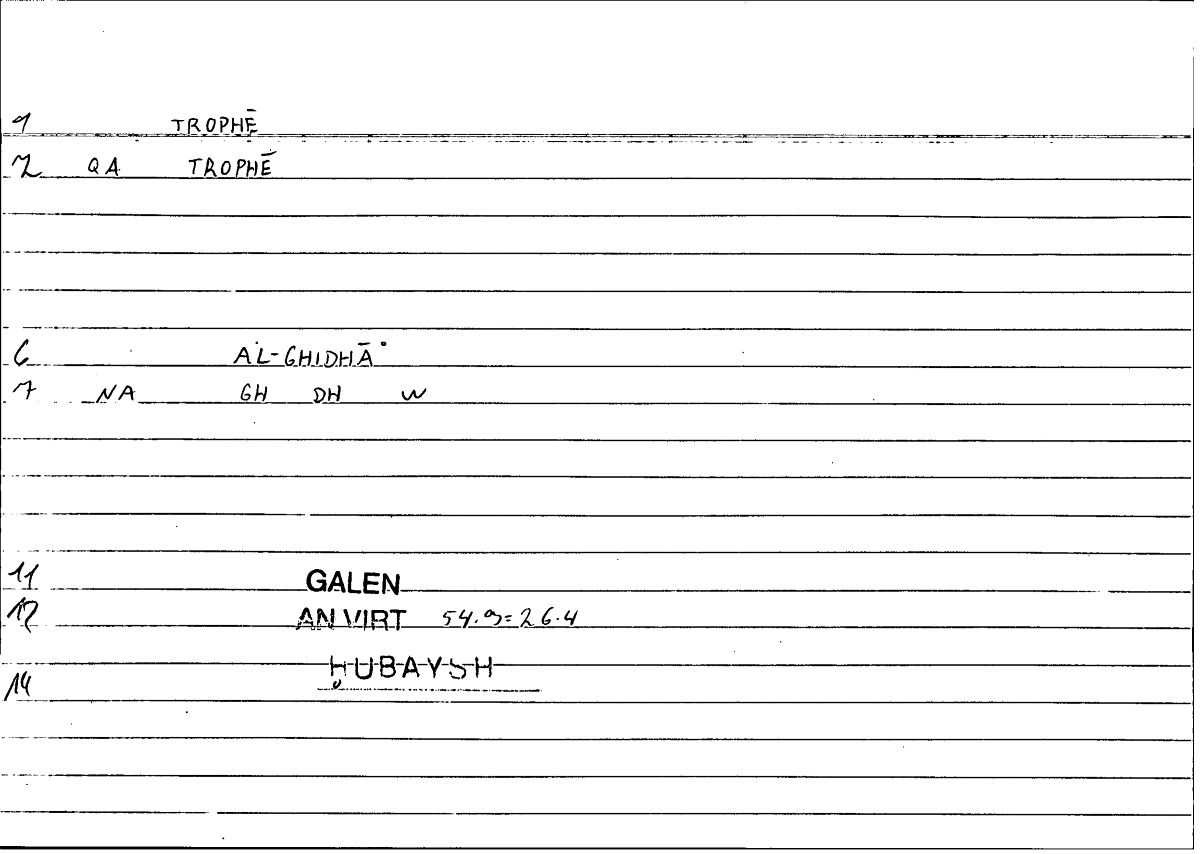 1 TROPHĒ
2 QA TROPHĒ
6 AL-GHIDHĀʾ
7 NA GH DH W
11 GALEN
12 AN VIRT 54.9=26.4
ḤUBAYSH
14